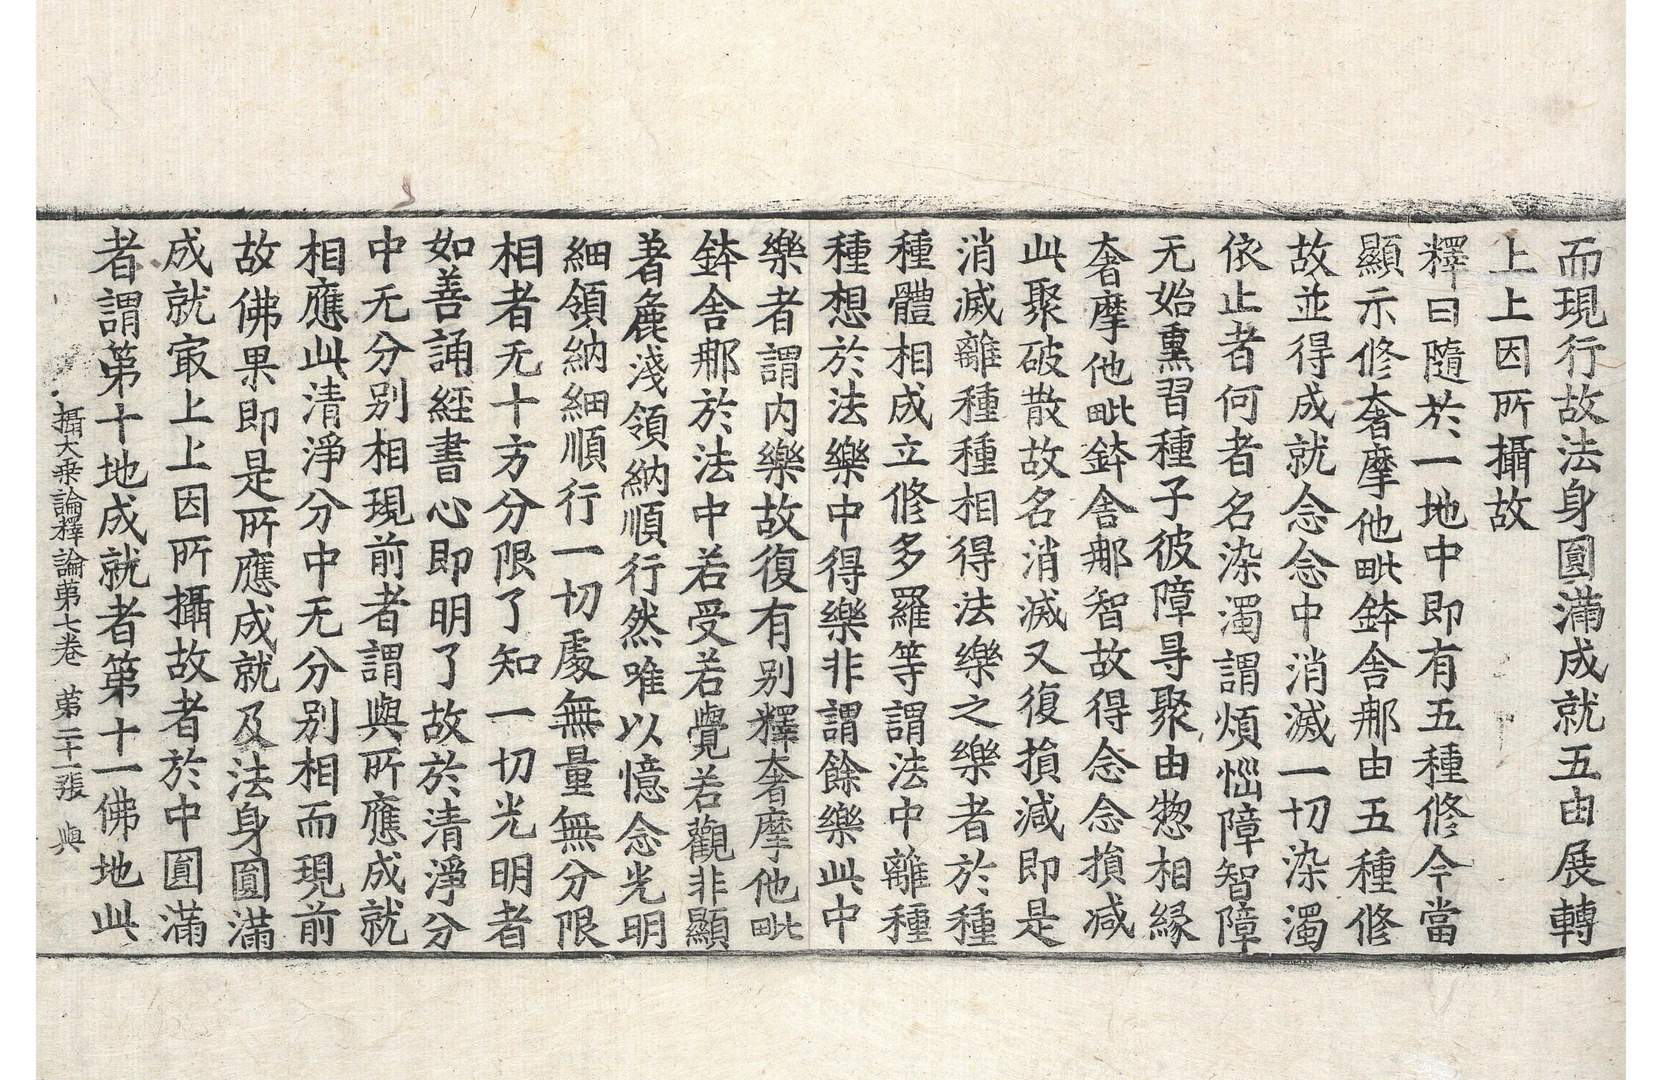 而現行故法身圓滿成就五由展轉
上上因所攝故
釋曰隨於一地中即有五種修今當
顯示修奢摩他毗鉢舍那由五種修
故並得成就念念中消滅一切染濁
依止者何者名染濁謂煩惱障智障
无始熏習種子彼障㝵聚由惣相緣
奢摩他毗鉢舍那智故得念念損減
此聚破散故名消滅又復損減即是
消滅離種種相得法樂之樂者於種
種體相成立修多羅等謂法中離種
種想於法樂中得樂非謂餘樂此中
樂者謂內樂故復有別釋奢摩他毗
鉢舍那於法中若受若覺若觀非顯
著麁淺領納順行然唯以憶念光明
細領納細順行一切處無量無分限
相者无十方分限了知一切光明者
如善誦經書心即明了故於清淨分
中无分別相現前者謂與所應成就
相應此清淨分中无分別相而現前
故佛果即是所應成就及法身圓滿
成就㝡上上因所攝故者於中圓滿
者謂第十地成就者第十一佛地此
攝大乗論釋論第七卷 第二十一張 與